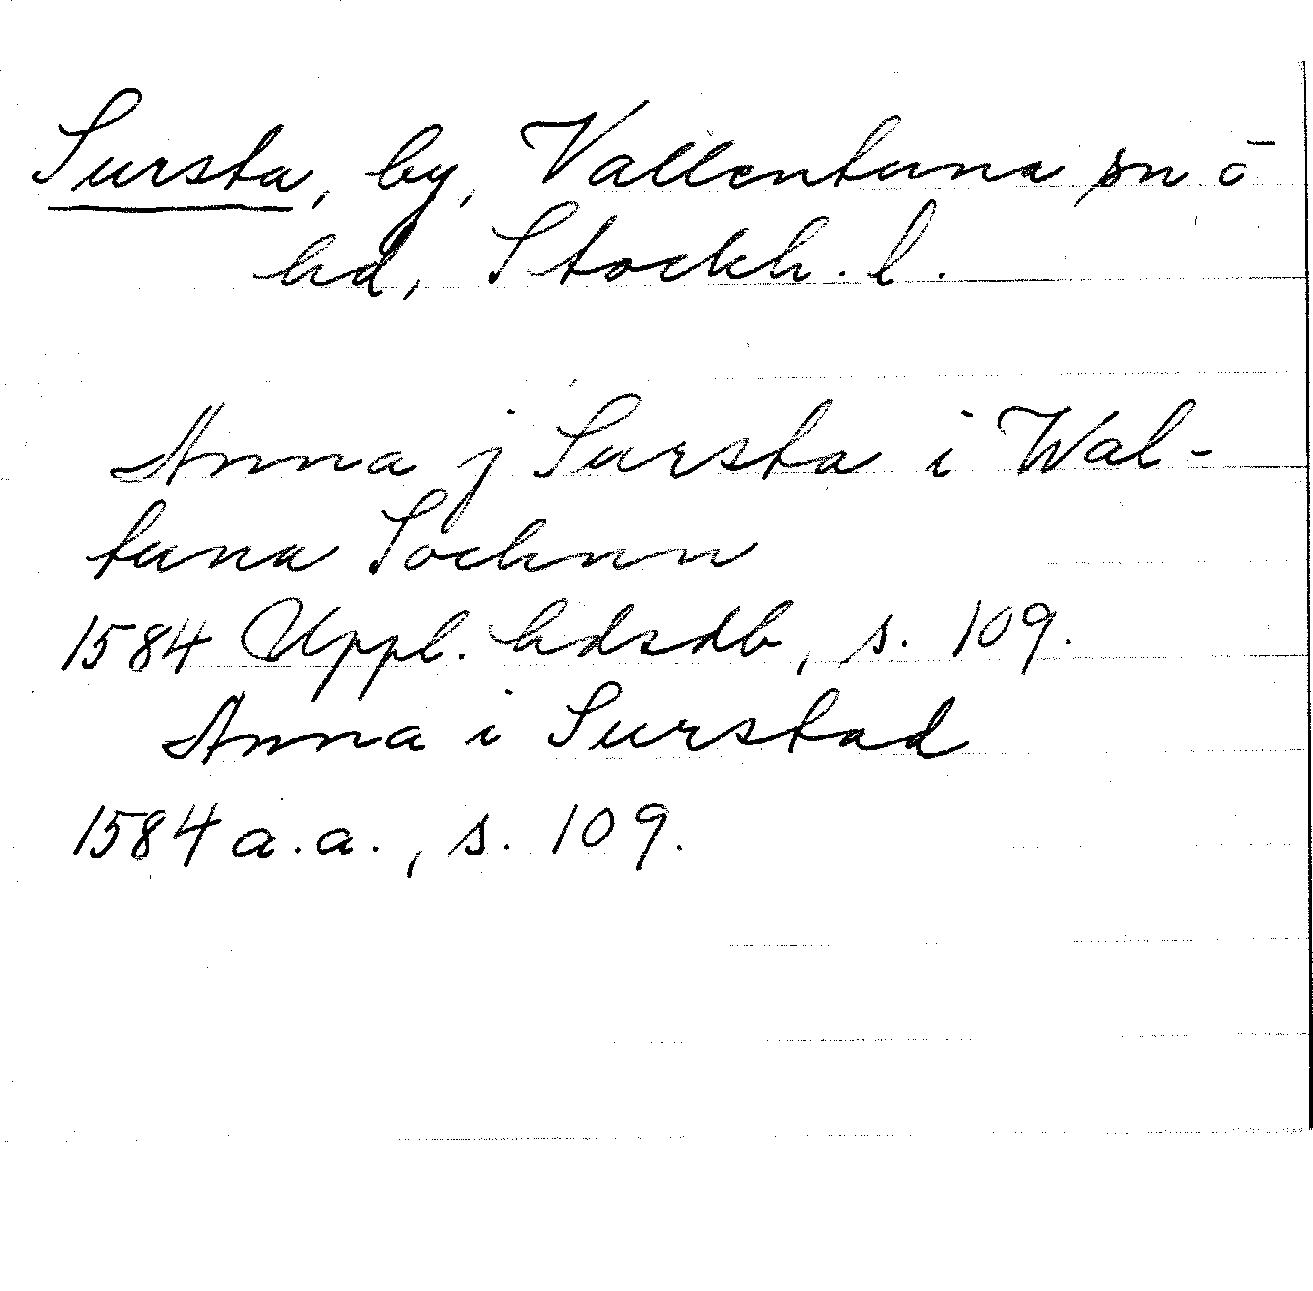 Sursta, by, Vallentuna sn o
hd, Stockh. l.
Anna j Sursta i Wal-
tuna Sochnn
1584 Uppl. hdsdb, s. 109.
Anna i Surstad
1584 a.a., s. 109.